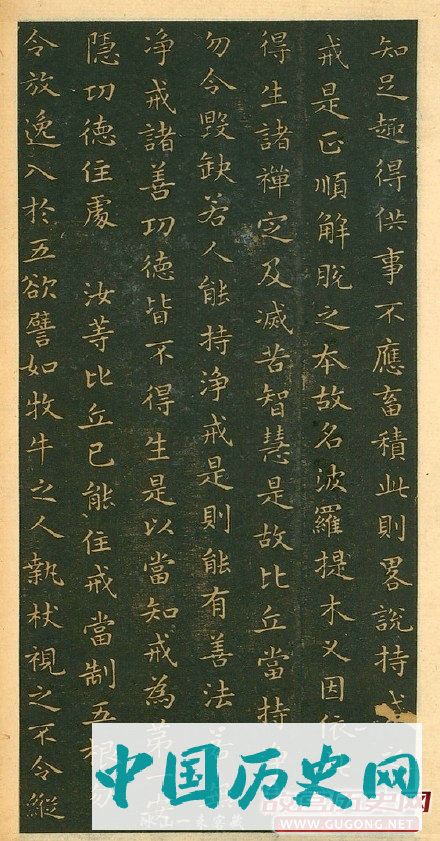 知足趣得供事不應畜積此則畧說持戒
戒是正順解脫之本故名波羅提木叉因依
得生諸禪定及滅苦智慧是故比丘當持
勿令毀缺若人能持淨戒是則能有善法
净戒諸善功德皆不得生是以當知戒為第
隱功德住處 汝等比丘已能住戒當制五根
令放逸入於五欲譬如牧牛之人執杖視之不令縱
中国历史网
WWW.GUGONG.NET